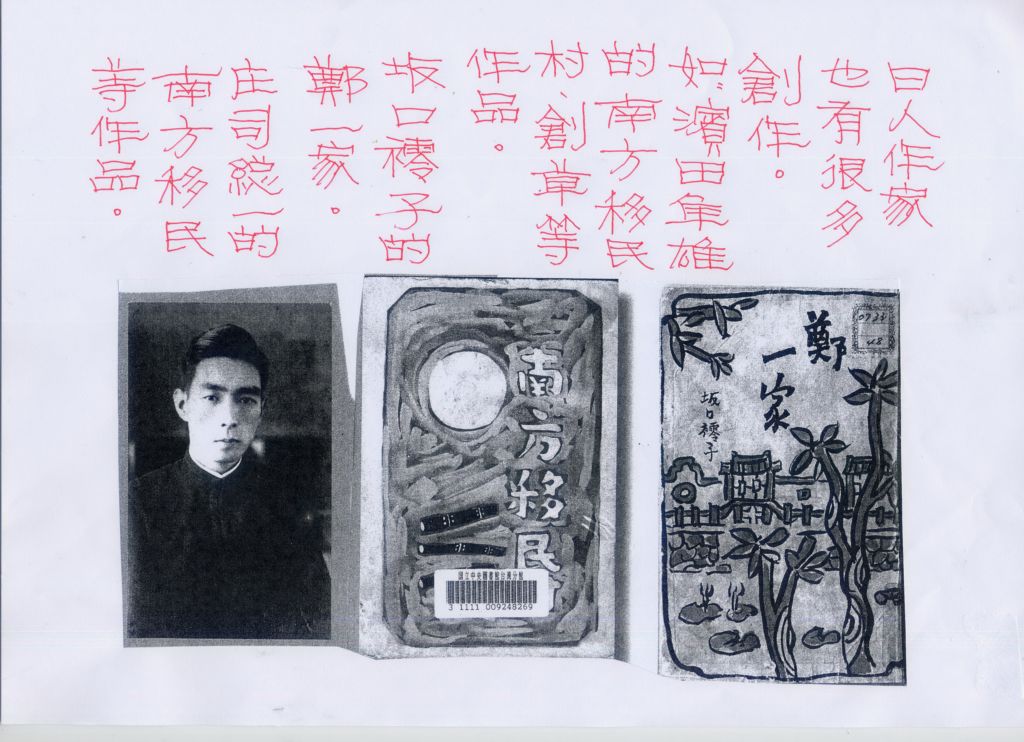 日人作家
也有很多
創作。
如:濱田隼雄
的南方移民
村、創草等
作品。
坂口䙥子的
鄭一家。
庄司総一的
南方移民
等作品。
南方移民
国立中央圖書館台灣分館
3 1111 009248269
鄭一家
坂口䙥子
48